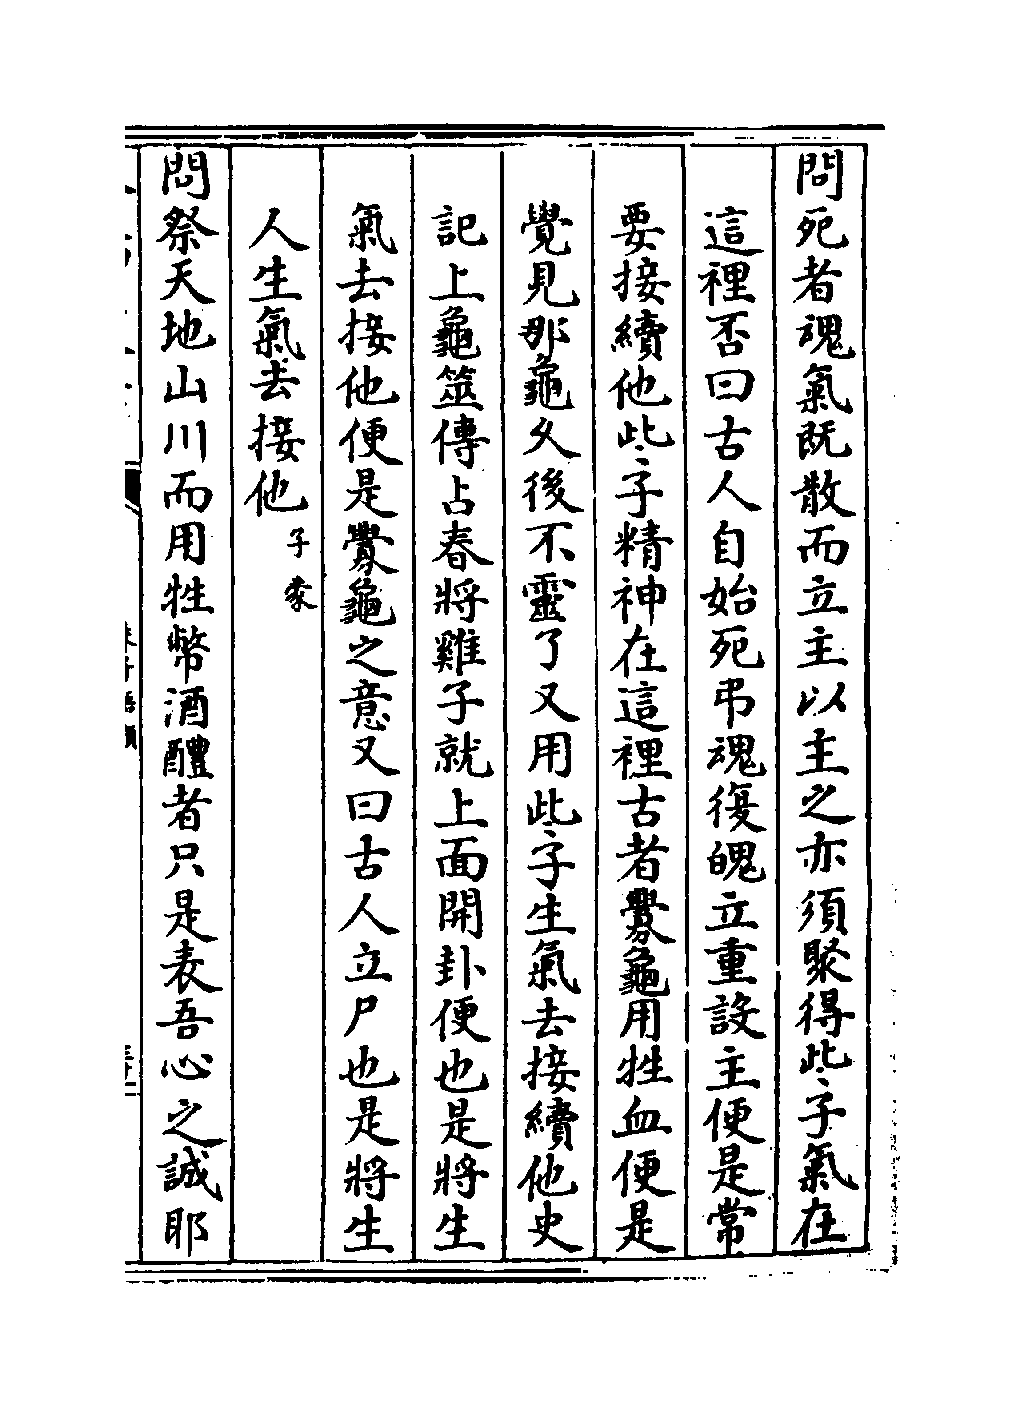 問死者魂氣既散而立主以主之亦須聚得此子氣在
這裡否曰古人自始死弔魂復魄立重設主便是常
要接續他此子精神在這裡古者釁龜用牲血便是
覺見那龜久後不靈了又用此子生氣去接續他史
記上龜筮傳占春將雞子就上面開卦便也是將生
氣去接他便是釁龜之意又曰古人立尸也是將生
人生氣去接他子蒙
問祭天地山川而用牲幣酒醴者只是表吾心之誠耶
朱子語類